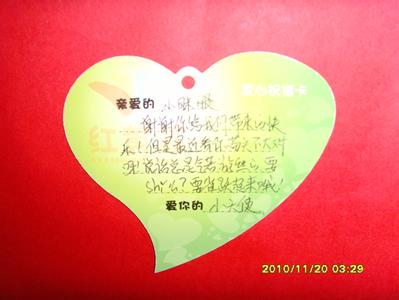 爱心祝福卡
亲爱的 小眯眼
谢谢你给我们带来的快
乐!但是最近看你苗头不太对
说话总是气若游丝 要
shi了?要雄起来哦!
爱你的 小天使
红
2010/11/20 03:29